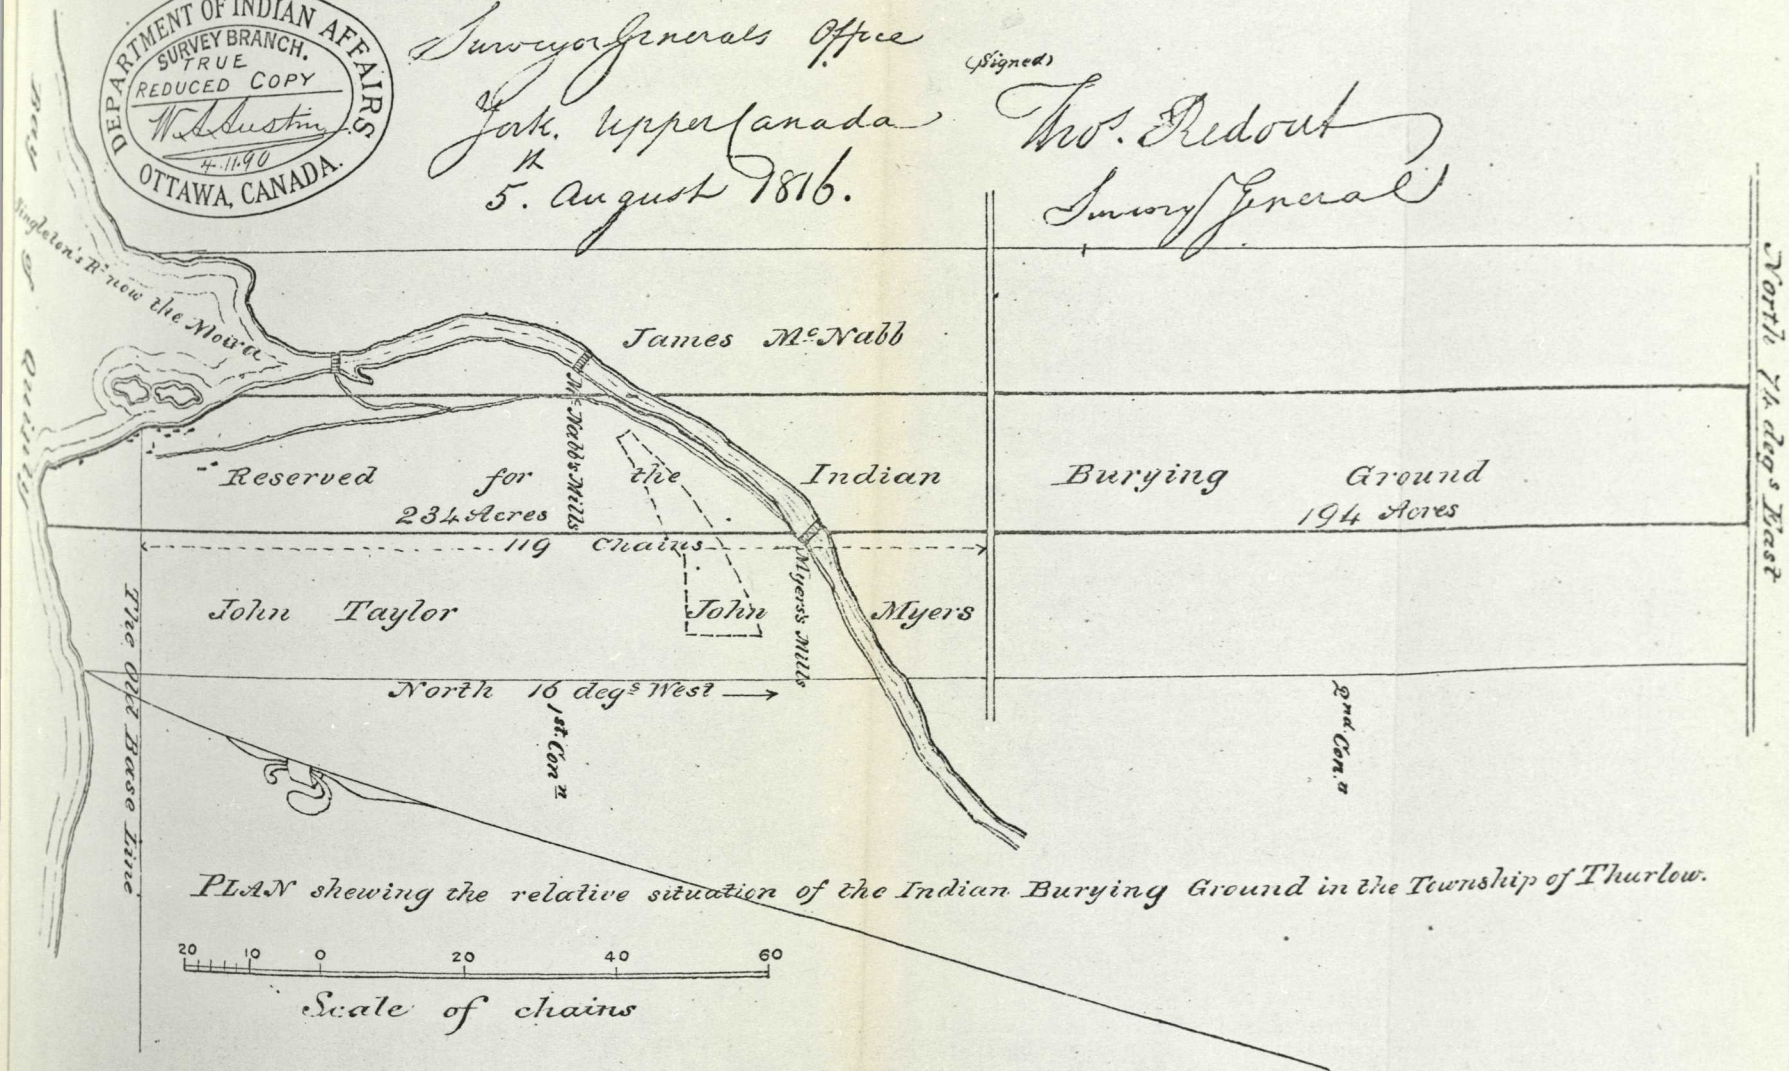 DEPARTMENT OF INDIAN AFFAIRS
SURVEY BRANCH.
TRUE
REDUCED COPY
W A Austin
4.11.90
OTTAWA, CANADA.
Surveyor Generals Office
York. Upper Canada
5. August 1816.
(Signed)
Thos. Ridout
Survey General
Bay of Quinty
Singleton's R. now the Moira
North 74 degs East
James McNabb
McNabb's Mills
Reserved for the Indian Burying Ground
234 Acres
194 Acres
119 Chains
John Taylor
John Myers
Myers's Mills
The Old Base Line
North 16 degs West
1st. Con.n
2nd. Con.n
PLAN shewing the relative situation of the Indian Burying Ground in the Township of Thurlow.
20 10 0 20 40 60
Scale of chains